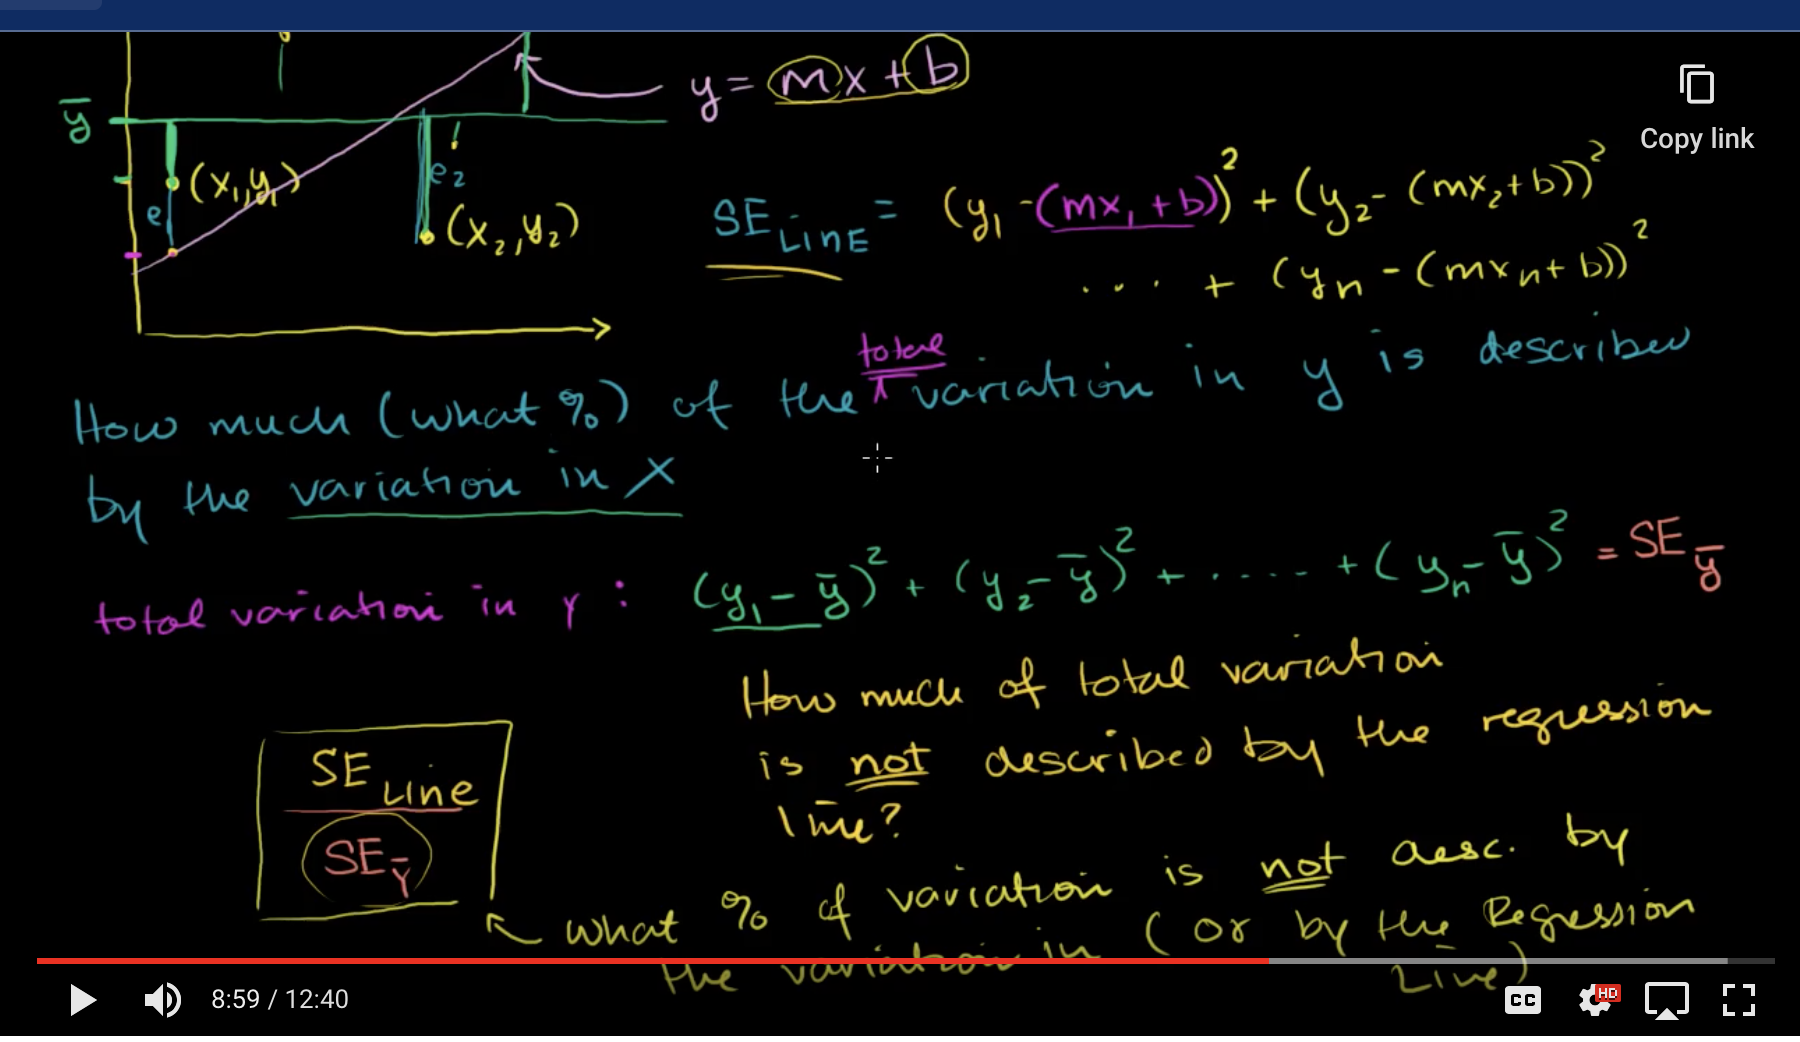 y = mx + b
Copy link
ȳ
(x₁, y₁)
e₂
e
(x₂, y₂)
SE LINE = (y₁ - (mx₁ + b))² + (y₂ - (mx₂ + b))²
... + (yₙ - (mxₙ + b))²
total
How much (what %) of the ∧ variation in y is described
by the variation in x
total variation in Y : (y₁ - ȳ)² + (y₂ - ȳ)² + ..... + (yₙ - ȳ)² = SE ȳ
How much of total variation
is not described by the regression
line?
SE Line
SE Ȳ
what % of variation is not desc. by
the variation in (or by the Regression
Line)
8:59 / 12:40
CC
HD